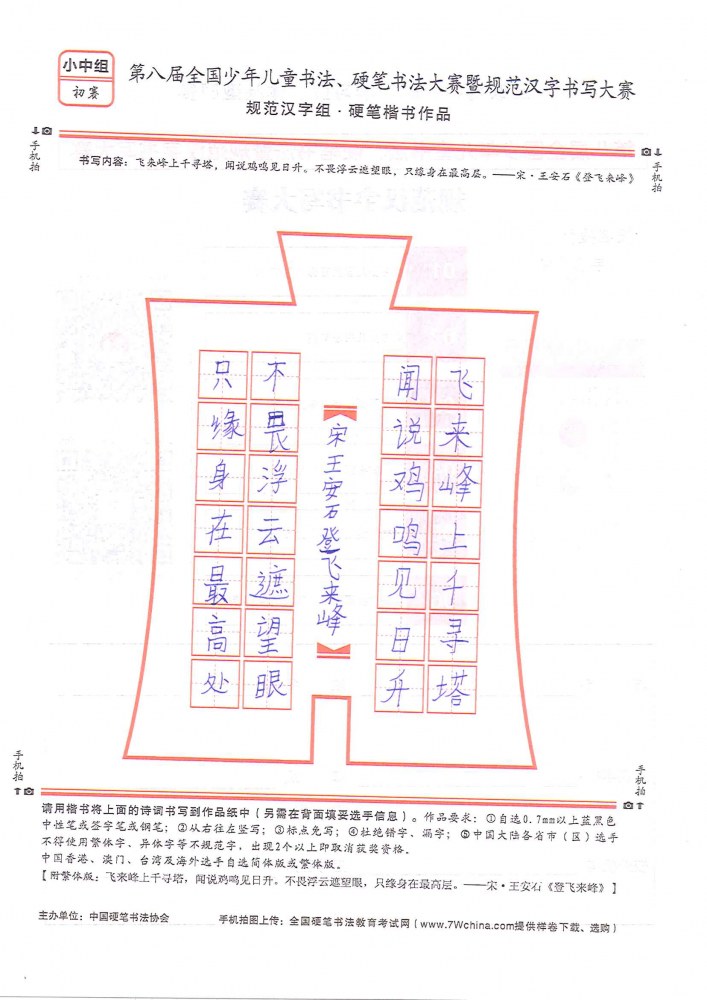 小中组
初赛
第八届全国少年儿童书法、硬笔书法大赛暨规范汉字书写大赛
规范汉字组·硬笔楷书作品
手机拍
手机拍
书写内容：飞来峰上千寻塔，闻说鸡鸣见日升。不畏浮云遮望眼，只缘身在最高层。——宋·王安石《登飞来峰》
飞来峰上千寻塔
闻说鸡鸣见日升
宋王安石登飞来峰
不畏浮云遮望眼
只缘身在最高处
手机拍
手机拍
请用楷书将上面的诗词书写到作品纸中（另需在背面填妥选手信息）。作品要求：①自选0.7mm以上蓝黑色
中性笔或签字笔或钢笔；②从右往左竖写；③标点免写；④杜绝错字、漏字；⑤中国大陆各省市（区）选手
不得使用繁体字、异体字等不规范字，出现2个以上即取消获奖资格。
中国香港、澳门、台湾及海外选手自选简体版或繁体版。
【附繁体版：飞来峰上千寻塔，闻说鸡鸣见日升。不畏浮云遮望眼，只缘身在最高层。——宋·王安石《登飞来峰》】
主办单位：中国硬笔书法协会
手机拍图上传：全国硬笔书法教育考试网（www.7Wchina.com提供样卷下载、选购）